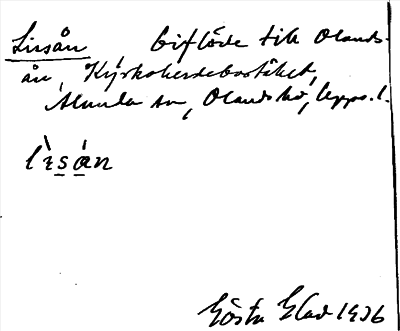 Lissån biflöde till Olands-
ån, Kyrkoherdebostället,
Alunda sn, Olands hd, Upps. l.
Gösta Elad 1936